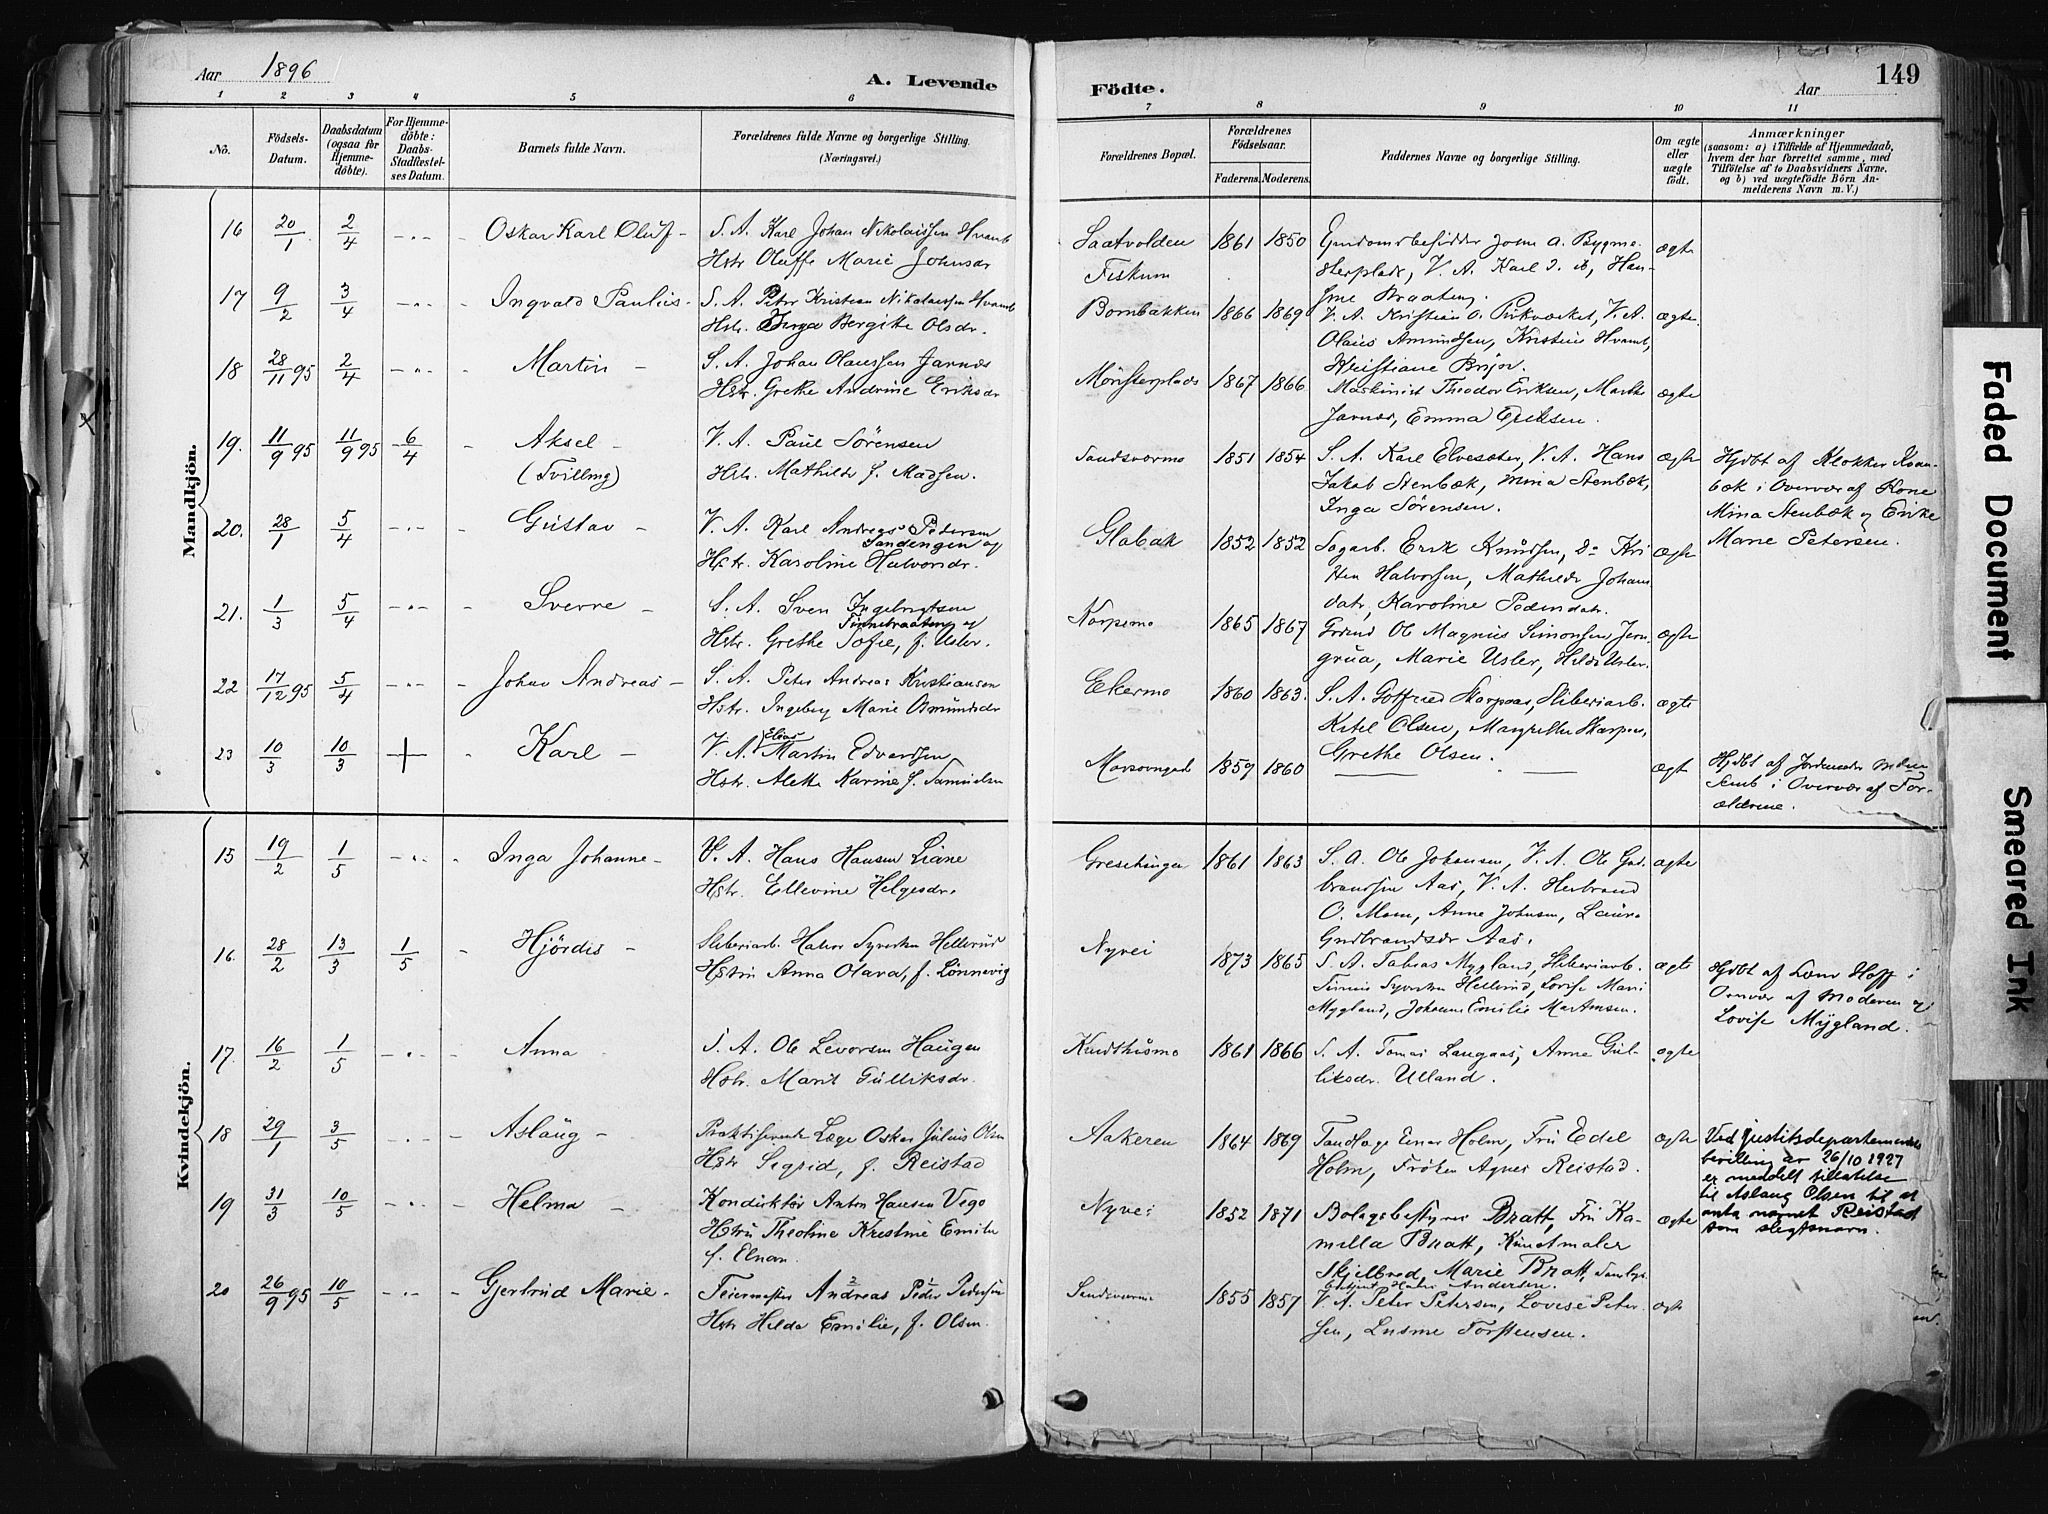 Aar 1896
A. Levende
1 2 3 4 5 6
No. Fødsels-Datum. Daabsdatum (ogsaa for Hjemmedöbte). For Hjemmedöbte: Daabs-Stadfæstelses Datum. Barnets fulde Navn. Forældrenes fulde Navne og borgerlige Stilling. (Næringsvei.)
Mandkjön.
16 20/1 2/4 Oskar Karl Oluf S. A. Karl Johan Nikolaissen Hvamb
Hstr Oluffe Marie Johnsdr
17 9/2 3/4 Ingvald Paulius S. A. Peter Kristian Nikolaissen Hvamb
Hstr. Inga Bergitte Olsdr.
18 28/11 95 2/4 Martin S. A. Johan Olaussen Jarnæs
Hstr. Grethe Andrine Eriksdr
19. 11/9 95 11/9 95 6/4 Aksel V. A. Paul Sørensen
(Tvilling) Hstr. Mathilde f. Madsen.
20. 28/1 5/4 Gustav V. A. Karl Andreas Pedersen
Sandengen og
Hstr. Karoline Halvorsdr.
21. 1/3 5/4 Sverre S. A. Sven Ingebrigtsen
Finnebraaten og
Hstr. Grethe Sofie, f. Usler.
22 17/12 95 5/4 Johan Andreas S. A. Peter Andreas Kristiansen
Hstr. Ingeborg Marie Osmundsdr
23 10/3 10/3 + Karl V. A. Elias Martin Edvardsen
Hstr. Alette Karine f. Samuelsen
Kvindekjön.
15 19/2 1/5 Inga Johanne V. A. Hans Hansen Liane
Hstr. Ellevine Helgesdr.
16. 28/2 13/3 1/5 Hjördis Sliberiarb. Halvor Syversen Hellerud
Hstru Anna Olava, f. Lönnevig
17. 16/2 1/5 Anna S. A. Ole Levorsen Haugen
Hstr. Marit Gulliksdr.
18 29/1 3/5 Aslaug Praktiserende Læge Oskar Julius Olsen
Hstr Sigrid, f. Reistad
19 31/3 10/5 Helma Konduktör Anton Hansen Vego
Hstru Theoline Kristine Emilie
f. Elnan.
20 26/9 95 10/5 Gjertrud Marie Feiermester Andreas Peder Pedersen
Hstr Hilda Emilie, f. Olsen.
Födte. Aar 149
7 8 9 10 11
Forældrenes Bopæl. Forældrenes Födselsaar. Faderens. Moderens. Faddernes Navne og borgerlige Stilling. Om ægte eller uægte födt. Anmærkninger (saasom: a) i Tilfælde af Hjemmedaab, hvem der har forrettet samme, med Tilföielse af to Daabsvidners Navne, og b) ved uægtefödte Börn Anmelderens Navn m. V.)
Saatvolden 1861 1850 John A. Bygme- ægte
Fiskum sterplads, V. A. Karl
Braaten.
Bornbakken 1866 1869 V. A. Kristian V. A. ægte.
Olaus Amundsen, Kristine Hvamb,
1867 1866 Maskinist Theodor Eriksen, Marthe ægte
Jarnæs, Emma Eriksen.
Sandsværmo 1851 1854 S. A. Karl Elvesæter, V. A. Hans ægte Hjdbt af Klokker Kvan-
Jakob Stenbæk, Mina Stenbæk, bæk i Overvær af Kone
Inga Sørensen. Mina Stenbæk og Enke
Marie Petersen.
Glabak 1852 1852 Sagarb. Erik Knudsen, Do Kri ægte
sten Halvorsen, Mathilde Johans
datr, Karoline Pedersdatr.
Korpemo 1865 1867 Ole Magnus Simonsen, Jern- ægte
grua, Marie Usler, Hilda Usler.
Ekermo 1860 1863. S. A. Gotfred Skarpaas, Sliberiarb. ægte
Ketil Olsen, Margrethe Skarpaas,
Grethe Olsen.
1859 1860 ægte Hjdbt af Jordemoder
Semb i Overvær af For-
ældrene.
1861 1863 S. A. Ole Johansen, V. A. Ole Gud- ægte
brandsen Aas, V. A. Herbrand
O. Moen, Anne Johnsen, Laura
Gudbrandsdr Aas.
Nyvei 1873 1865 S. A. Tobias Mygland, Sliberiarb. ægte Hjdbt af Læge Hoff i
Syversen Hellerud, Lovise Marie Overvær af Moderen og
Mygland, Johanne Emilie Martinsen. Lovise Mygland.
Knudthusmo 1861 1866 S. A. Tomas Langaas, Anne Gul- ægte
liksdr. Ulland.
Aakeren 1864 1869 Tandlæge Einar Holm, Fru Edel ægte Ved Justitsdepartementets
Holm, Fröken Agnes Reistad. bevilling av 26/10 1927
er meddelt tillatelse
til Aslaug Olsen til at
anta navnet Reistad
som slegtsnavn.
Nyvei 1852 1871 Bolagsbestyrer Bratt, Fru Ka- ægte
milla Bratt, Kunstmaler
Skjelbred, Marie Bratt,
Andersen.
Sandsværmo 1855 1857 V. A. Peter Petersen, Lovise Peter- ægte
sen, Torstensen.
Faded Document
Smeared Ink